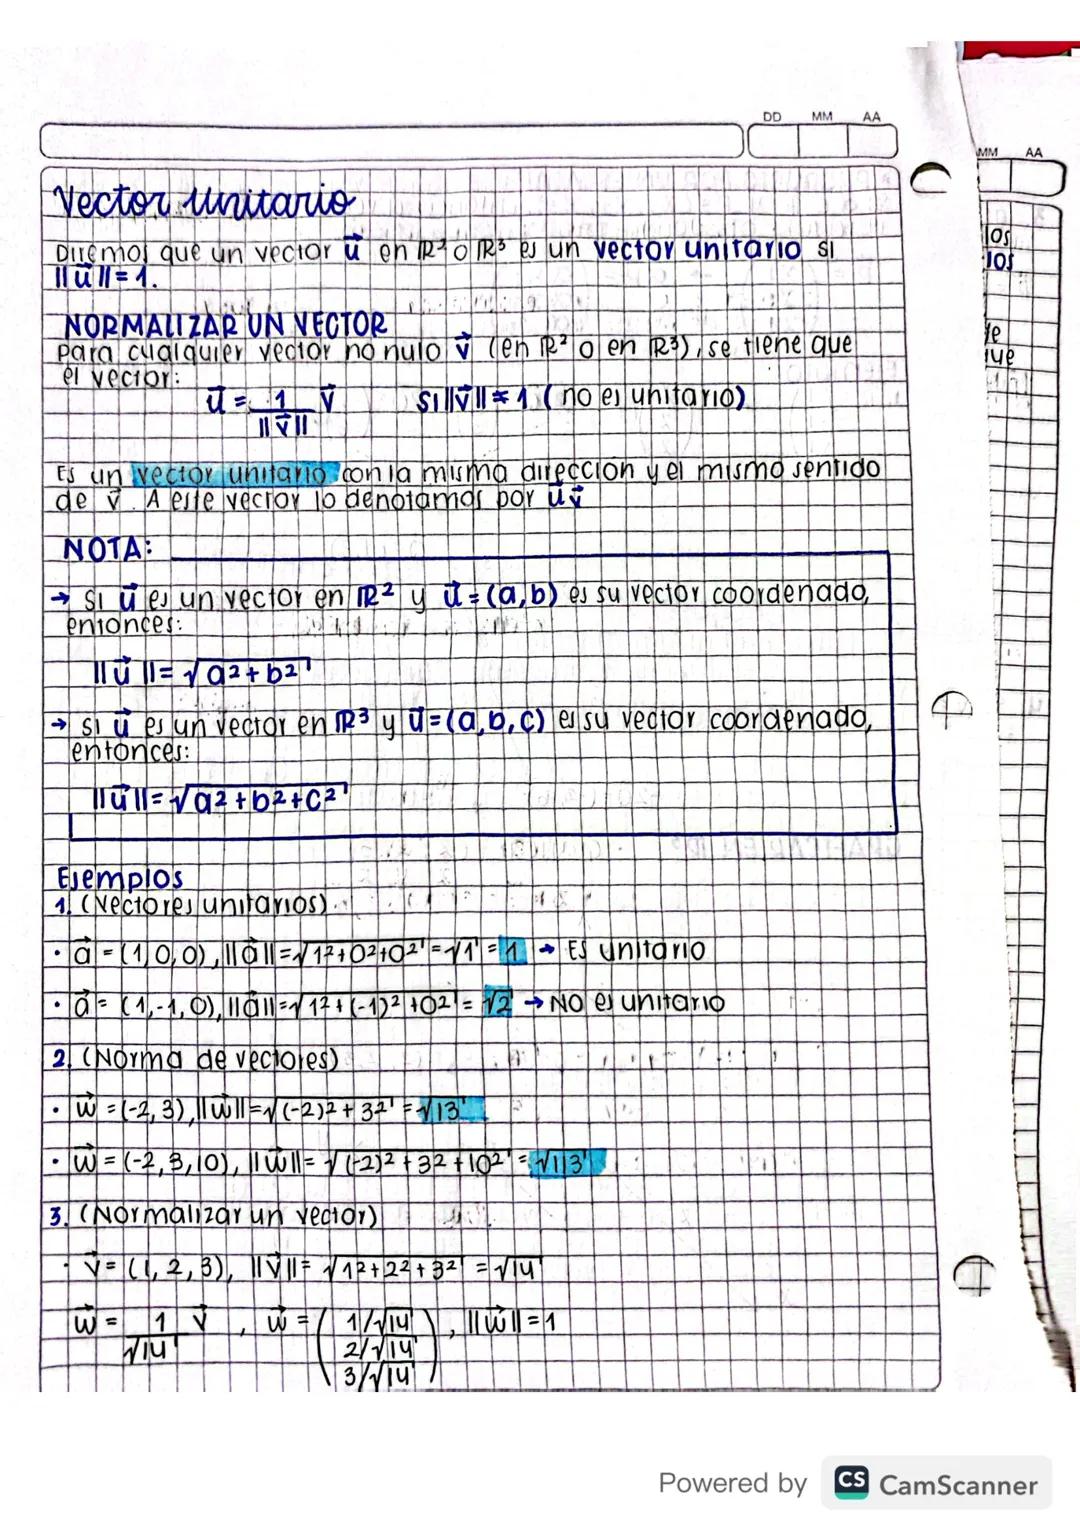 DD MM AA
MM AA
Vector Unitario
Diremos que un vector u⃗ en ℝ² o ℝ³ es un vector unitario si
||u⃗|| = 1.
NORMALIZAR UN VECTOR
Para cualquier vector no nulo v⃗ (en ℝ² o en ℝ³), se tiene que
el vector:
u⃗ = 1/||v⃗|| v⃗ Si ||v⃗|| ≠ 1 (no es unitario)
Es un vector unitario con la misma dirección y el mismo sentido
de v⃗. A este vector lo denotamos por u⃗v⃗
NOTA:
→ Si u⃗ es un vector en ℝ² y u⃗ = (a,b) es su vector coordenado,
entonces:
||u⃗|| = √a²+b²
→ Si u⃗ es un vector en ℝ³ y u⃗ = (a,b,c) es su vector coordenado,
entonces:
||u⃗|| = √a²+b²+c²
Ejemplos
1. (Vectores unitarios)
· a⃗ = (1,0,0), ||a⃗|| = √1²+0²+0² = √1 = 1 → Es unitario
· a⃗ = (1,-1,0), ||a⃗|| = √1²+(-1)²+0² = √2 → No es unitario
2. (Norma de vectores)
· w⃗ = (-2,3), ||w⃗|| = √(-2)²+3² = √13
· w⃗ = (-2,3,10), ||w⃗|| = √(-2)²+3²+10² = √113
3. (Normalizar un vector)
· v⃗ = (1,2,3), ||v⃗|| = √1²+2²+3² = √14
w⃗ = 1/√14 v⃗, w⃗ = (1/√14
2/√14
3/√14), ||w⃗|| = 1
los
los
ue
Powered by CS CamScanner